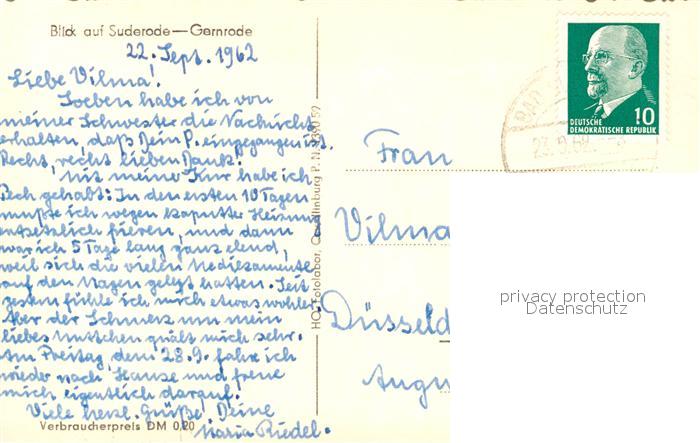 Blick auf Suderode—Gernrode
22. Sept. 1962
Liebe Vilma!
Soeben habe ich von
meiner Schwester die Nachricht
erhalten, daß Dein P. eingegangen ist.
Recht, recht lieben Dank!
Mit meiner Kur habe ich
Pech gehabt: In den ersten 10 Tagen
mußte ich wegen kaputter Heizung
entsetzlich frieren, und dann
war ich 5 Tage lang ganz elend,
weil sich die vielen Medikamente
auf den Magen gelegt hatten. Seit
gestern fühle ich mich etwas wohler.
Aber der Schmerz um mein
liebes Muttchen quält mich sehr.
Am Freitag, dem 28.9. fahre ich
wieder nach Hause und freue
mich eigentlich darauf.
Viele herzl. Grüße Deine
Maria Riedel.
Verbraucherpreis DM 0,20
HO-Fotolabor, Quedlinburg
DEUTSCHE
DEMOKRATISCHE REPUBLIK
10
BAD
Frau
Vilma
Düsseld
Augu
privacy protection
Datenschutz